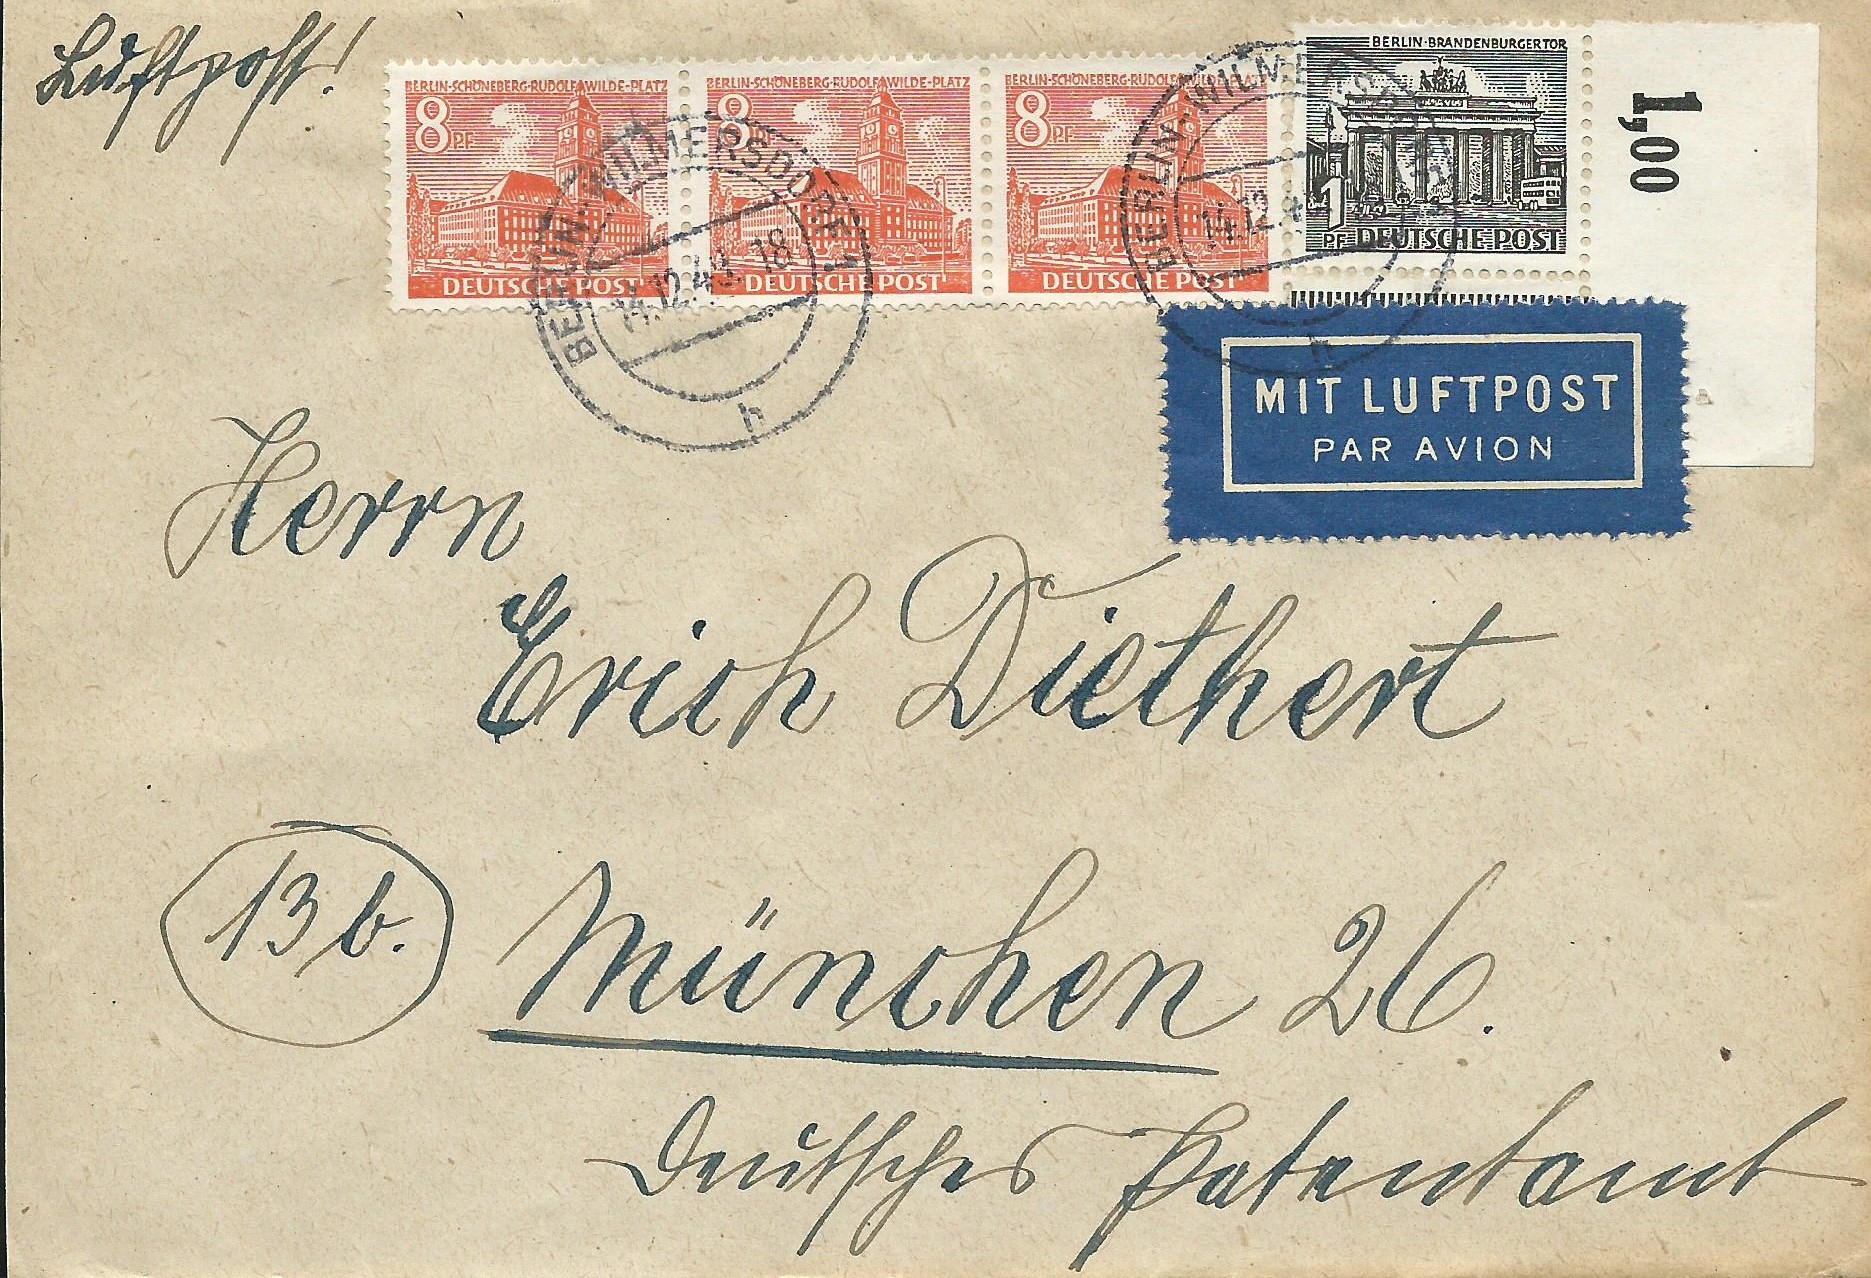 Luftpost!
BERLIN-SCHÖNEBERG-RUDOLF WILDE-PLATZ
8 PF
DEUTSCHE POST
BERLIN-SCHÖNEBERG-RUDOLF WILDE-PLATZ
8
DEUTSCHE POST
BERLIN-SCHÖNEBERG-RUDOLF WILDE-PLATZ
8 PF
DEUTSCHE POST
BERLIN-BRANDENBURGER TOR
1 PF DEUTSCHE POST
1,00
BERLIN-WILMERSDORF 1
14.12.49 18
h
BERLIN-WILMERSDORF
14.12.4
h
MIT LUFTPOST
PAR AVION
Herrn
Erich Diethert
13b. München 26.
Deutsches Patentamt